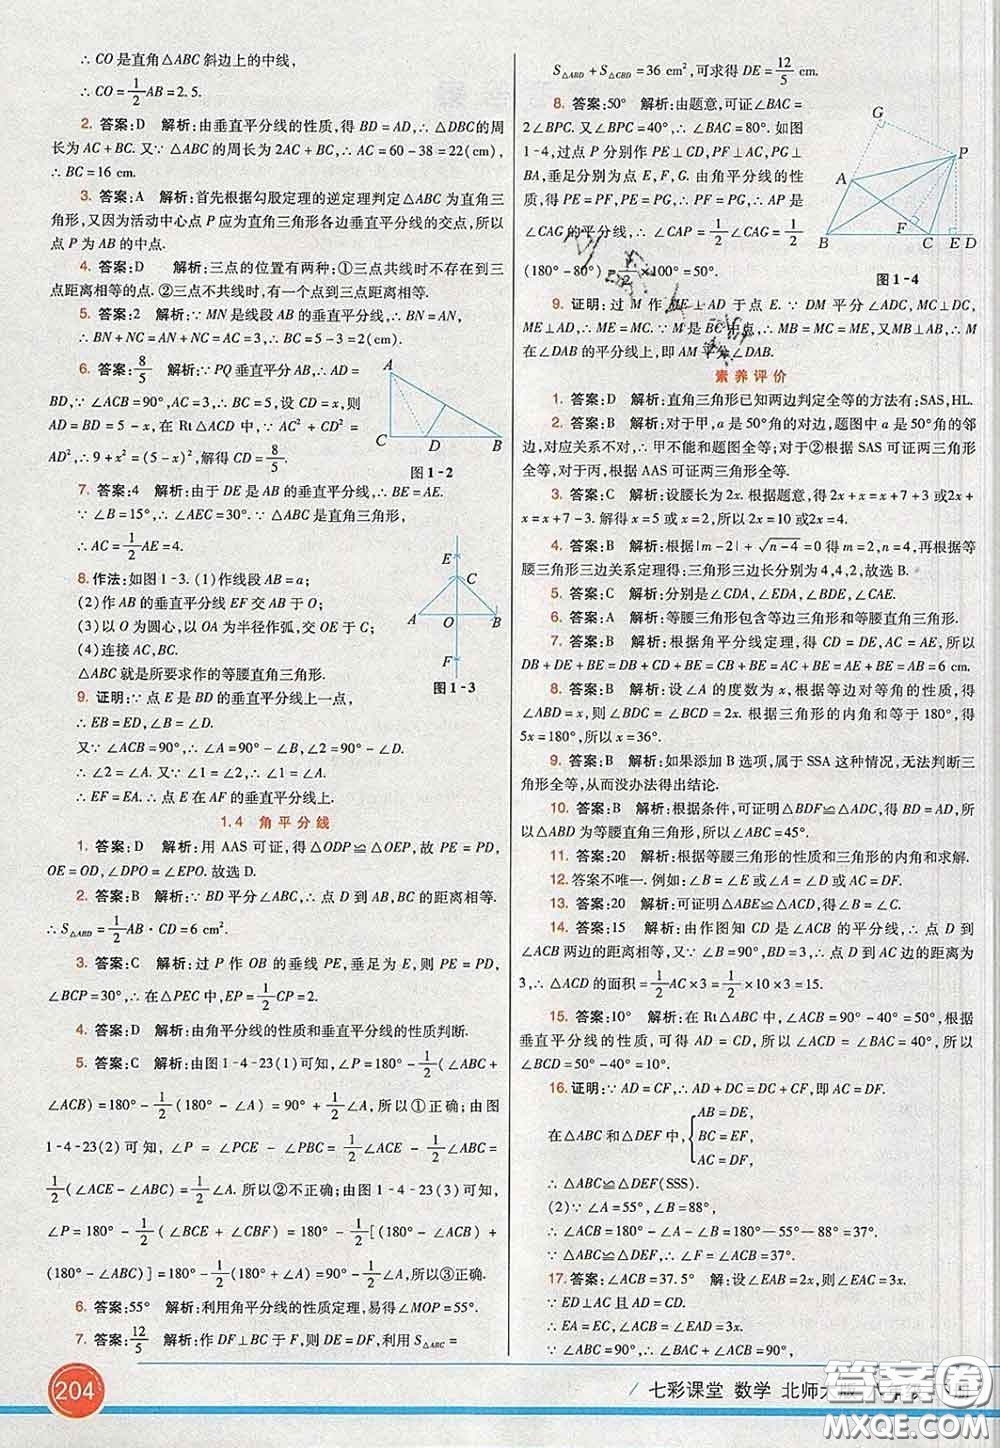 ∴ CO 是直角△ABC 斜边上的中线，
∴ CO = 1/2 AB = 2.5.
2. 答案：D　解析：由垂直平分线的性质，得 BD = AD，∴ △DBC的周
长为 AC + BC. 又∵ △ABC 的周长为 2AC + BC，∴ AC = 60 - 38 = 22(cm)，
∴ BC = 16 cm.
3. 答案：A　解析：首先根据勾股定理的逆定理判定△ABC 为直角三
角形，又因为活动中心点 P 应为直角三角形各边垂直平分线的交点，所以
点 P 为 AB 的中点.
4. 答案：D　解析：三点的位置有两种：①三点共线时不存在到三
点距离相等的点. ②三点不共线时，有一个点到三点距离相等.
5. 答案：2　解析：∵ MN 是线段 AB 的垂直平分线，∴ BN = AN，
∴ BN + NC = AN + NC = AC = 3，∴ BC = 5 - 3 = 2(cm).
6. 答案：8/5　解析：∵ PQ 垂直平分 AB，∴ AD =
BD，∵ ∠ACB = 90°，AC = 3，BC = 5，设 CD = x，则
AD = BD = 5 - x，在 Rt△ACD 中，∵ AC² + CD² =
AD²，∴ 9 + x² = (5 - x)²，解得 CD = 8/5.
A
C
D
B
图 1 - 2
7. 答案：4　解析：由于 DE 是 AB 的垂直平分线，∴ BE = AE.
∵ ∠B = 15°，∴ ∠AEC = 30°. ∵ △ABC 是直角三角形，
∴ AC = 1/2 AE = 4.
8. 作法：如图 1 - 3. (1)作线段 AB = a；
(2)作 AB 的垂直平分线 EF 交 AB 于 O；
(3)以 O 为圆心，以 OA 为半径作弧，交 OE 于 C；
(4)连接 AC，BC.
△ABC 就是所要求作的等腰直角三角形.
E
C
A
O
B
F
图 1 - 3
9. 证明：∵ 点 E 是 BD 的垂直平分线上一点，
∴ EB = ED，∠B = ∠D.
又∵ ∠ACB = 90°，∴ ∠A = 90° - ∠B，∠2 = 90° - ∠D.
又∵ ∠1 = ∠2，∴ ∠1 = ∠A.
∴ EF = EA. ∴ 点 E 在 AF 的垂直平分线上.
1.4　角平分线
1. 答案：D　解析：用 AAS 可证，得△ODP ≌ △OEP，故 PE = PD，
OE = OD，∠DPO = ∠EPO. 故选 D.
2. 答案：B　解析：∵ BD 平分∠ABC，∴ 点 D 到 AB，BC 的距离相等.
∴ S△ABD = 1/2 AB · CD = 6 cm².
3. 答案：C　解析：过 P 作 OB 的垂线 PE，垂足为 E，则 PE = PD，
∠BCP = 30°，∴ 在△PEC 中，EP = 1/2 CP = 2.
4. 答案：D　解析：由角平分线的性质和垂直平分线的性质判断.
5. 答案：C　解析：由图 1 - 4 - 23(1)可知，∠P = 180° - 1/2(∠ABC +
∠ACB) = 180° - 1/2(180° - ∠A) = 90° + 1/2∠A，所以①正确；由图
1 - 4 - 23(2)可知，∠P = ∠PCE - ∠PBC = 1/2∠ACE - 1/2∠ABC =
1/2(∠ACE - ∠ABC) = 1/2∠A. 所以②不正确；由图 1 - 4 - 23(3)可知，
∠P = 180° - 1/2(∠BCE + ∠CBF) = 180° - 1/2[(180° - ∠ACB) +
(180° - ∠ABC)] = 180° - 1/2(180° + ∠A) = 90° - 1/2∠A，所以③正确.
6. 答案：55°　解析：利用角平分线的性质定理，易得∠MOP = 55°.
7. 答案：12/5　解析：作 DF⊥BC 于 F，则 DE = DF，利用 S△ABC =
S△ABD + S△CBD = 36 cm²，可求得 DE = 12/5 cm.
8. 答案：50°　解析：由题意，可证∠BAC =
2∠BPC. 又∠BPC = 40°，∴ ∠BAC = 80°. 如图
1 - 4，过点 P 分别作 PE⊥CD，PF⊥AC，PG⊥
BA，垂足分别为点 E，F，G. 由角平分线的性质，
得 PE = PF，PE = PG，∴ PF = PG，∴ AP 是
∠CAG 的平分线，∴ ∠CAP = 1/2∠CAG = 1/2
(180° - 80°) = 1/2 × 100° = 50°.
G
P
A
F
B
C
E
D
图 1 - 4
9. 证明：过 M 作 ME⊥AD 于点 E. ∵ DM 平分∠ADC，MC⊥DC，
ME⊥AD，∴ MC = ME. ∵ M 是 BC 中点，∴ MB = MC = ME，又 MB⊥AB，∴ M
在∠DAB 的平分线上，即 AM 平分∠DAB.
素养评价
1. 答案：D　解析：直角三角形已知两边判定全等的方法有：SAS，HL.
2. 答案：B　解析：对于甲，a 是 50°角的对边，题图中 a 是 50°角的邻
边，对应关系不对，∴ 甲不能和题图全等；对于②根据 SAS 可证两三角形全
等，对于丙，根据 AAS 可证两三角形全等.
3. 答案：C　解析：设腰长为 2x. 根据题意，得 2x + x = x + 7 + 3 或 2x +
x = x + 7 - 3. 解得 x = 5 或 x = 2，所以 2x = 10 或 2x = 4.
4. 答案：B　解析：根据|m - 2| + √(n - 4) = 0 得 m = 2，n = 4，再根据等
腰三角形三边关系定理得：三角形三边长分别为 4，4，2，故选 B.
5. 答案：C　解析：分别是∠CDA，∠EDA，∠BDE，∠CAE.
6. 答案：A　解析：等腰三角形包含等边三角形和等腰直角三角形.
7. 答案：B　解析：根据角平分线定理，得 CD = DE，AC = AE，所以
DB + DE + BE = DB + CD + BE = CB + BE = AC + BE = AE + BE = AB = 6 cm.
8. 答案：B　解析：设∠A 的度数为 x，根据等边对等角的性质，得
∠ABD = x，则∠BDC = ∠BCD = 2x. 根据三角形的内角和等于 180°，得
5x = 180°，所以 x = 36°.
9. 答案：B　解析：如果添加 B 选项，属于 SSA 这种情况，无法判断三
角形全等，从而没办法得出结论.
10. 答案：B　解析：根据条件，可证明△BDF≌△ADC，得 BD = AD，所
以△ABD 为等腰直角三角形，所以∠ABC = 45°.
11. 答案：20　解析：根据等腰三角形的性质和三角形的内角和求解.
12. 答案不唯一. 例如：∠B = ∠E 或∠A = ∠D 或 AC = DF.
13. 答案：20　解析：可证明△ABE≌△ACD，得∠B = ∠C.
14. 答案：15　解析：由作图知 CD 是∠ACB 的平分线，∴ 点 D 到
∠ACB 两边的距离相等，又∵ ∠B = 90°，BD = 3，∴ 点 D 到 AC 边的距离为
3，∴ △ACD 的面积 = 1/2 AC × 3 = 1/2 × 10 × 3 = 15.
15. 答案：10°　解析：在 Rt△ACB 中，∠ACB = 90° - 40° = 50°，根据
垂直平分线的性质，可得 AD = CD，所以∠ACD = ∠BAC = 40°，所以
∠BCD = 50° - 40° = 10°.
16. 证明：∵ AD = CF，∴ AD + DC = CF + DC，即 AC = DF.
在△ABC 和△DEF 中，{ AB = DE，
BC = EF，
AC = DF，
∴ △ABC≌△DEF(SSS).
(2)∵ ∠A = 55°，∠B = 88°，
∴ ∠ACB = 180° - ∠A - ∠B = 180° - 55° - 88° = 37°.
∵ △ABC≌△DEF，∴ ∠F = ∠ACB = 37°.
17. 答案：∠ACB = 37.5°　解：设∠EAB = 2x，则∠CAE = 5x.
∵ ED⊥AC 且 AD = CD，
∴ EA = EC，∠ACB = ∠CAE = 5x.
∵ ∠ABC = 90°，∴ ∠CAB + ∠ACB = 90°，
204
七彩课堂 数学 北师大版
答案圈
MXQE.COM